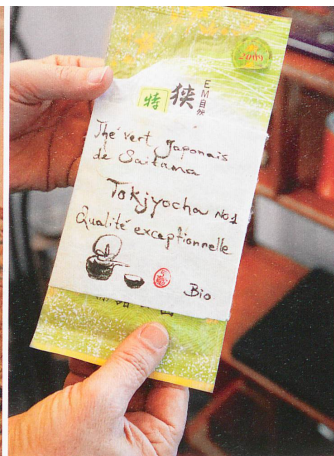 EM自然
特 狭
Thé vert Japonais
de Saitama
Tokiyocha No1
Qualité exceptionnelle
Bio